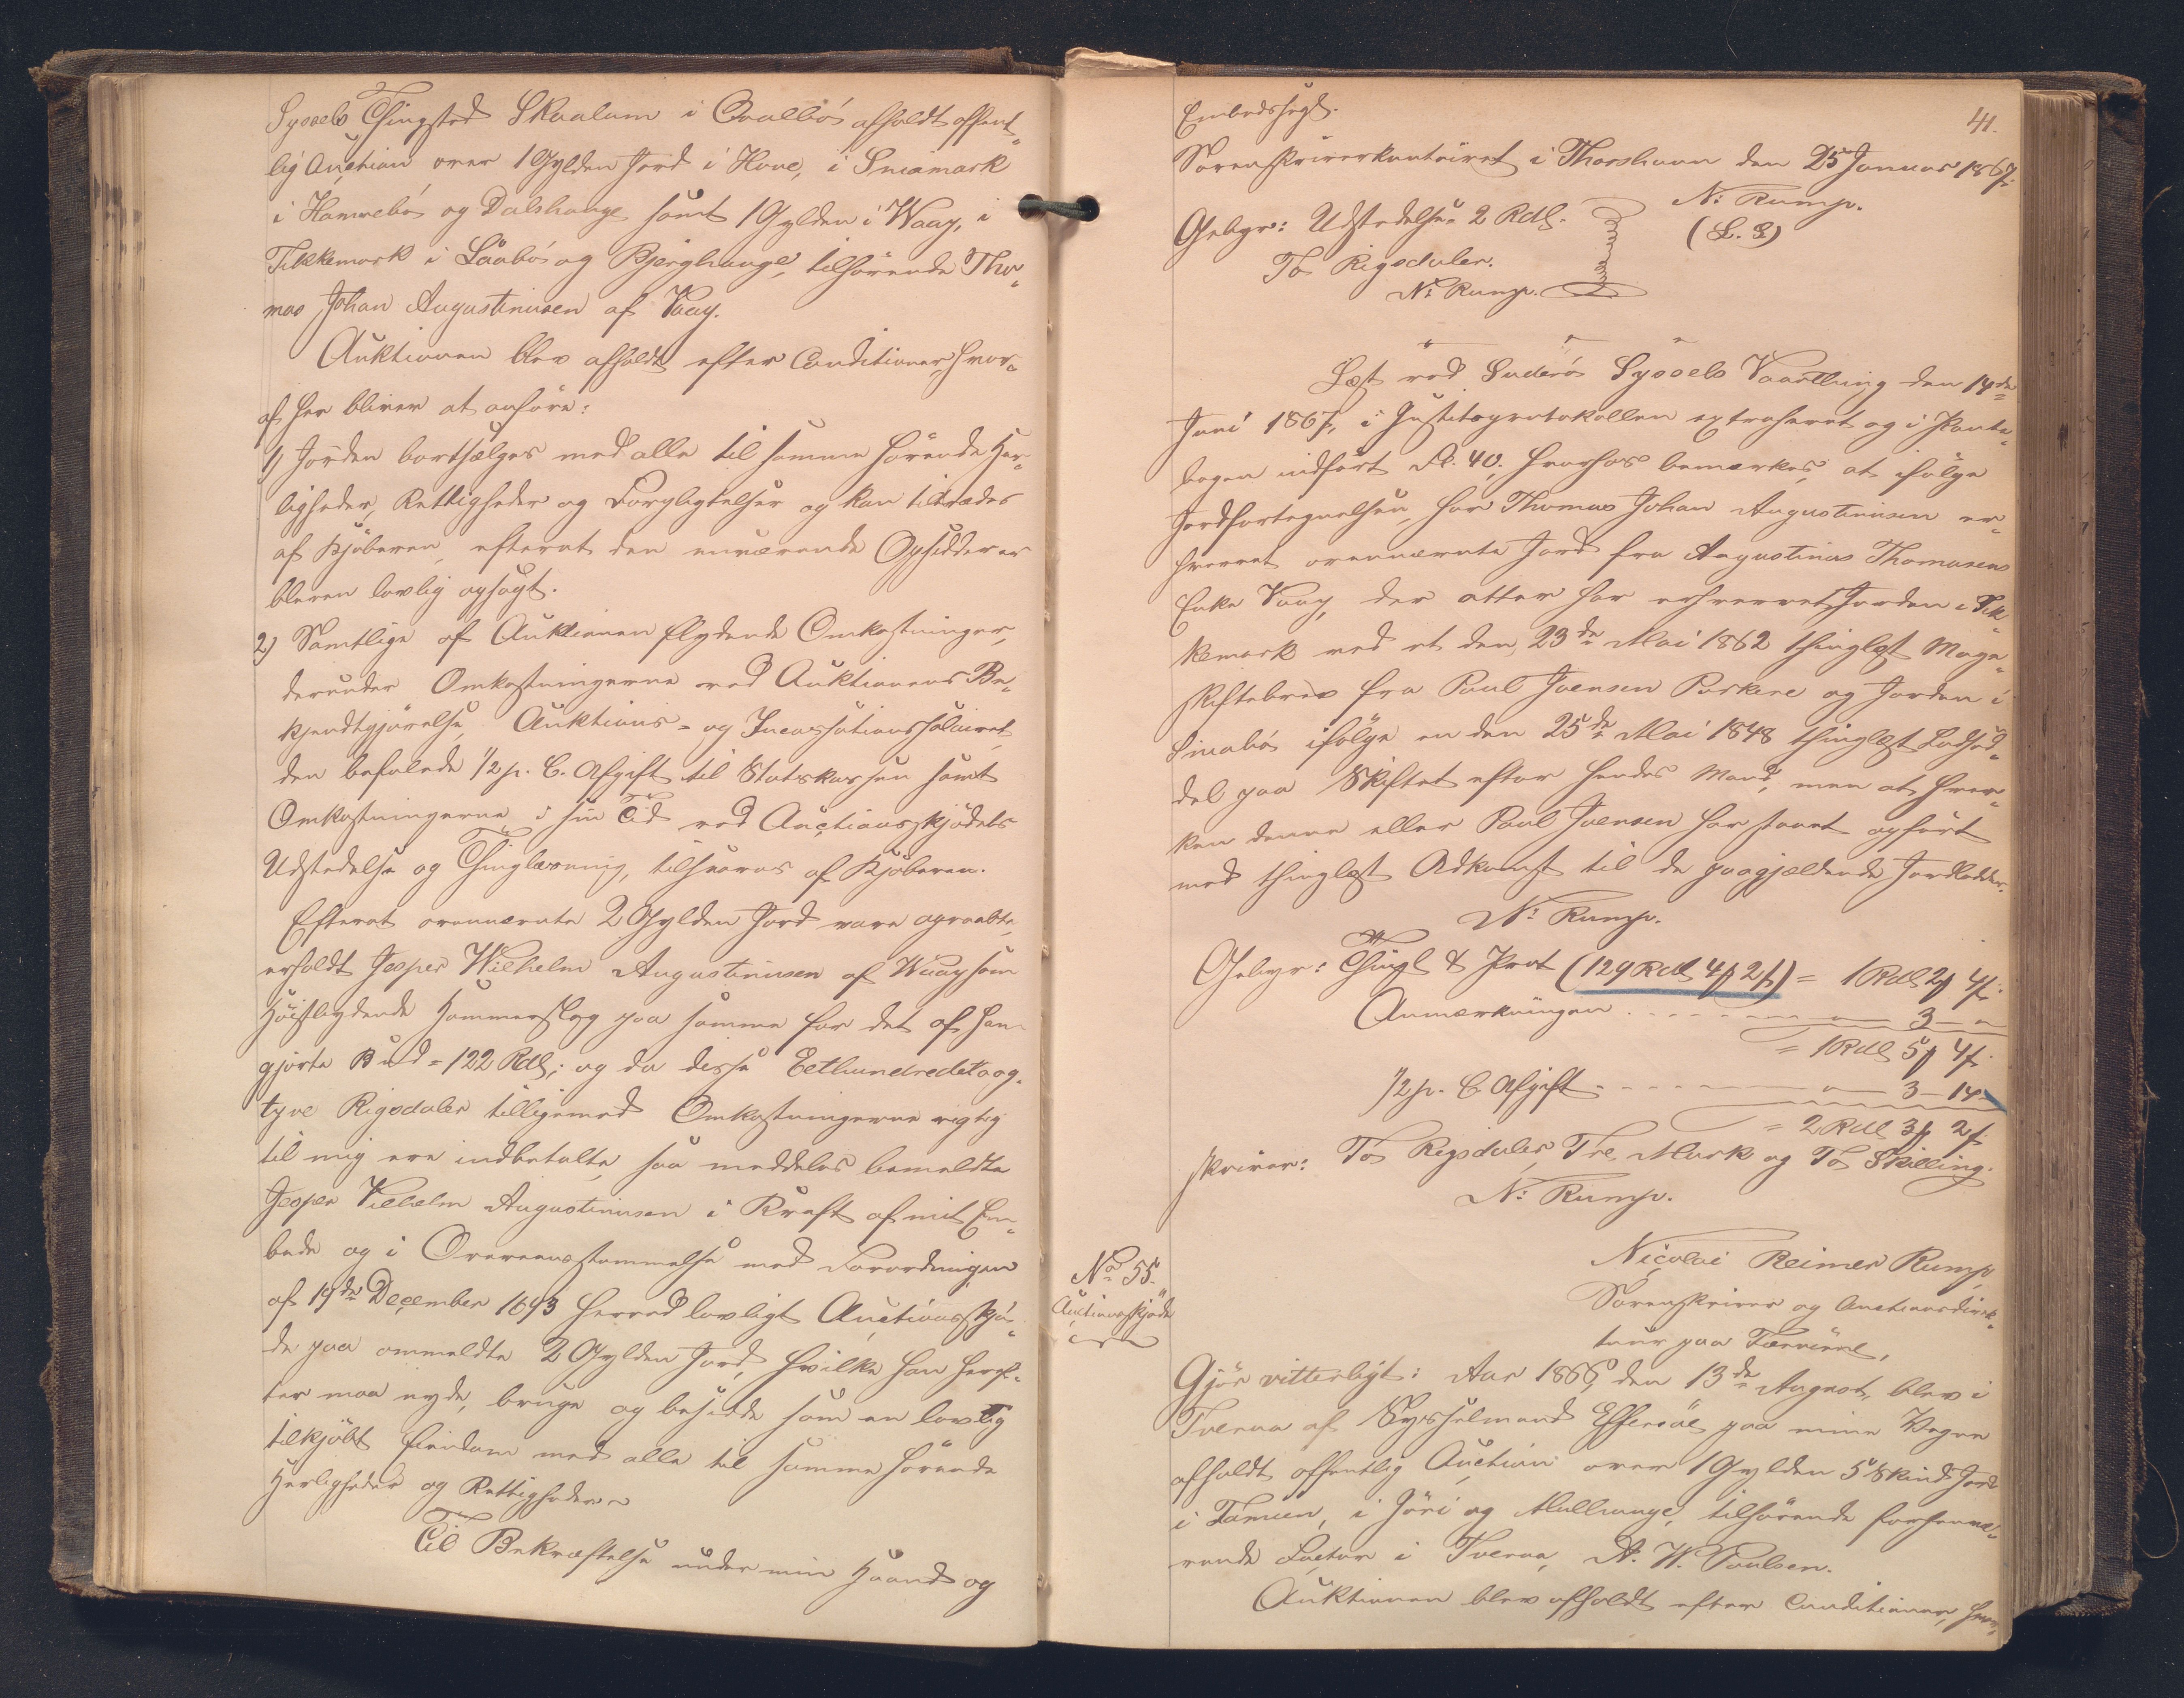 Syssels Thingsted Skaalum i Qvalbö afholdt offent-
lig Auction over 1 Gylden Jord i Hove, i Sniomark
i Hamrebö og Dalshauge samt 1 Gylden i Waag, i
Tekkemark i Laabö og Bjerghauge, tilhörende Tho-
mas Johan Augustinusen af Vaag.
Auktionen blev afholdt efter Conditioner, hvor-
af her bliver at anföre:
1) Jorden bortsælges med alle til samme hörende Her-
ligheder, Rettigheder og Forpligtelser og kan tiltrædes
af Kjöberen, efterat den nuværende Opsidder er
bleven lovlig opsagt.
2) Samtlige af Auktionen flydende Omkostninger,
derunder Omkostningerne ved Auktionens Be-
kjendtgjörelse, Auktions- og Incassationssalairet,
den befalede 1/2 p. C. Afgift til Statskassen samt
Omkostningerne i sin Tid ved Auctionsskjödets
Udstedelse og Thinglæsning, tilsvares af Kjöberen.
Efterat ovennævnte 2 Gylden Jord vare opraabte,
erholdt Jesper Wilhelm Augustinusen af Waag som
Höistbydende Hammerslag paa samme for det af ham
gjorte Bud = 122 Rdl; og da disse Eethundredetoog-
tyve Rigsdaler tilligemed Omkostningerne rigtig
til mig ere indbetalte, saa meddeles bemeldte
Jesper Vilhelm Augustinusen i Kraft af mit Em-
bede og i Overeensstemmelse med Forordningen
af 19de December 1693 herved lovligt Auctionsskjö-
de paa ommeldte 2 Gylden Jord, hvilke han heref-
ter maa nyde, bruge og besidde som en lovlig
tilkjöbt Eiendom med alle til samme hörende
Herligheder og Rettigheder.
Til Bekræftelse under min Haand og
41.
Embedssegl.
Sorenskriverkontoiret i Thorshavn den 25 Januar 1867.
N: Rump.
(L. S)
Gebyr: Udstedelse 2 Rdl.
To Rigsdaler.
N: Rump.
Læst ved Suderö Syssels Vaarthing den 14de
Juni 1867, i Justitsprotokollen extraheret og i Pante-
bogen indfört Fol. 40. hvorhos bemærkes, at ifölge
Jordfortegnelsen har Thomas Johan Augustinusen er-
hvervet ovennævnte Jord fra Augustinus Thomasens
Enke Vaag, der atter har erhvervet Jorden i Tek-
kemark ved et den 23de Mai 1862 thinglæst Mage-
skiftebrev fra Paul Joensen Porkere og Jorden i
Sniobö ifölge en den 25de Mai 1848 thinglæst Lodsed-
del paa Skiftet efter hendes Mand, men at hver-
ken denne eller Poul Joensen har staaet opfört
med thinglæst Adkomst til de paagjældende Jordlodder.
N: Rump.
Gebyr: Thingl & Prot (129 Rdl 4 ₻ 2 ß) = 1 Rdl 2 ₻ 4 ß.
Anmærkningen - - - 3 -
= 1 Rdl 5 ₻ 4 ß.
1/2 p. C. Afgift - - - 3 - 14 -
= 2 Rdl 3 ₻ 2 ß
skriver: To Rigsdaler, Tre Mark og To Skilling.
N: Rump.
No 55.
Auctionsskjöde
Nicolai Reimer Rump
Sorenskriver og Auctionsdirek-
teur paa Færöerne,
Gjör vitterligt: Aar 1866, den 13de August, blev i
Tveraa af Sysselmand Effersöe paa mine Vegne
afholdt offentlig Auction over 1 Gylden 5 Skind Jord
i Famien, i Jöri og Mullhauge, tilhörende forhenvæ-
rende Factor i Tveraa, A. W. Poulsen.
Auktionen blev afholdt efter Conditioner, hvor-